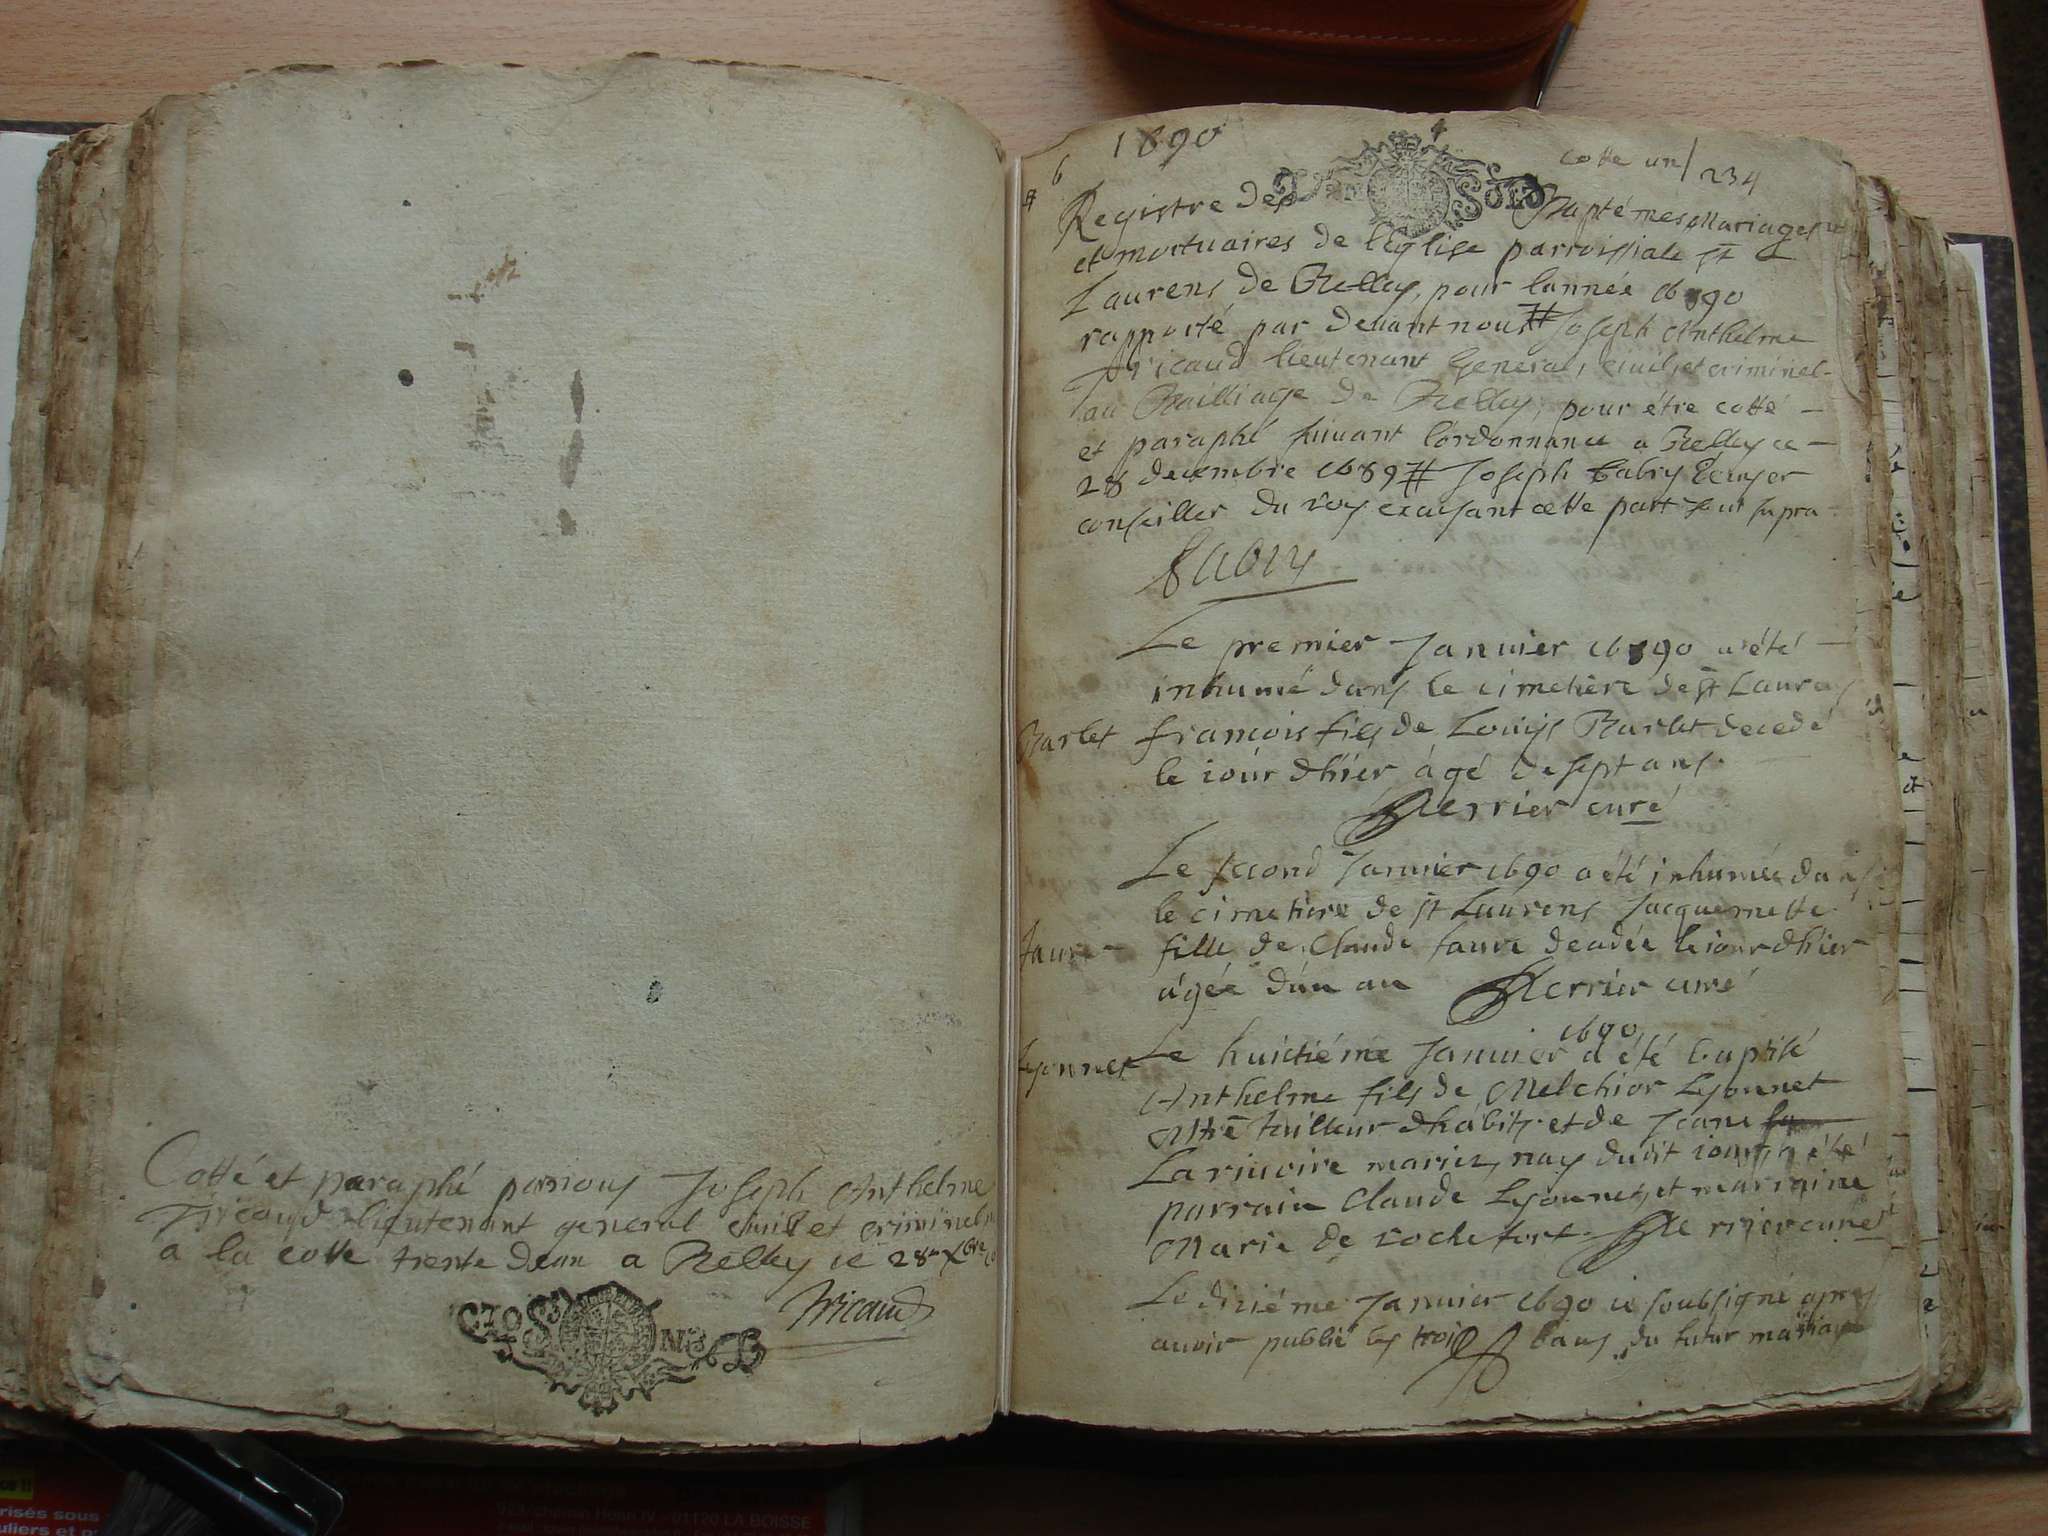 Cotté et paraphé par nous Joseph Anthelme
Tricaud lieutenant general civil et criminel
a la cotte trente deux a Belley ce 28e Xbre
Tricaud
1690
6
4
cotte un / 234
Registre des Baptémes Mariages
et mortuaires de l'Eglise parroissiale st
Laurens de Belley, pour lannée 1690
rapporté par devant nous # Joseph Anthelme
Tricaud lieutenant General, civil, et criminel
au Bailliage de Belley, pour étre cotté
et paraphé suivant l'ordonnance a Belley ce
28 decembre 1689 # Joseph fabry Ecuyer
conseiller du roy exerçant cette part fait supra
fabry
Le premier Janvier 1690 a été
inhumé dans le cimetière de st Laurens
Barlet
francois fils de Louys Barlet decedé
le iour d'hier ágé de sept ans
Perrier curé
Le second Janvier 1690 a été inhumée dans
le cimetiere de st Laurens Jacquemette
faure
fille de Claude faure decedée le iour d'hier
ágée d'un an Perrier curé
1690
Lyonnet
Le huictiéme Janvier a été baptisé
Anthelme fils de Melchior Lyonnet
Mtre tailleur d'habits et de Jeane
Larivoire mariez, nay dudit iour, a été
parrain Claude Lyonnet, et marraine
Marie de rochefort. Perrier curé
Le diziéme Janvier 1690 ie soubsigné apres
avoir publié les trois bans du futur mariage
923 chemin Henri IV - 01120 LA BOISSE
risés sous
uliers et